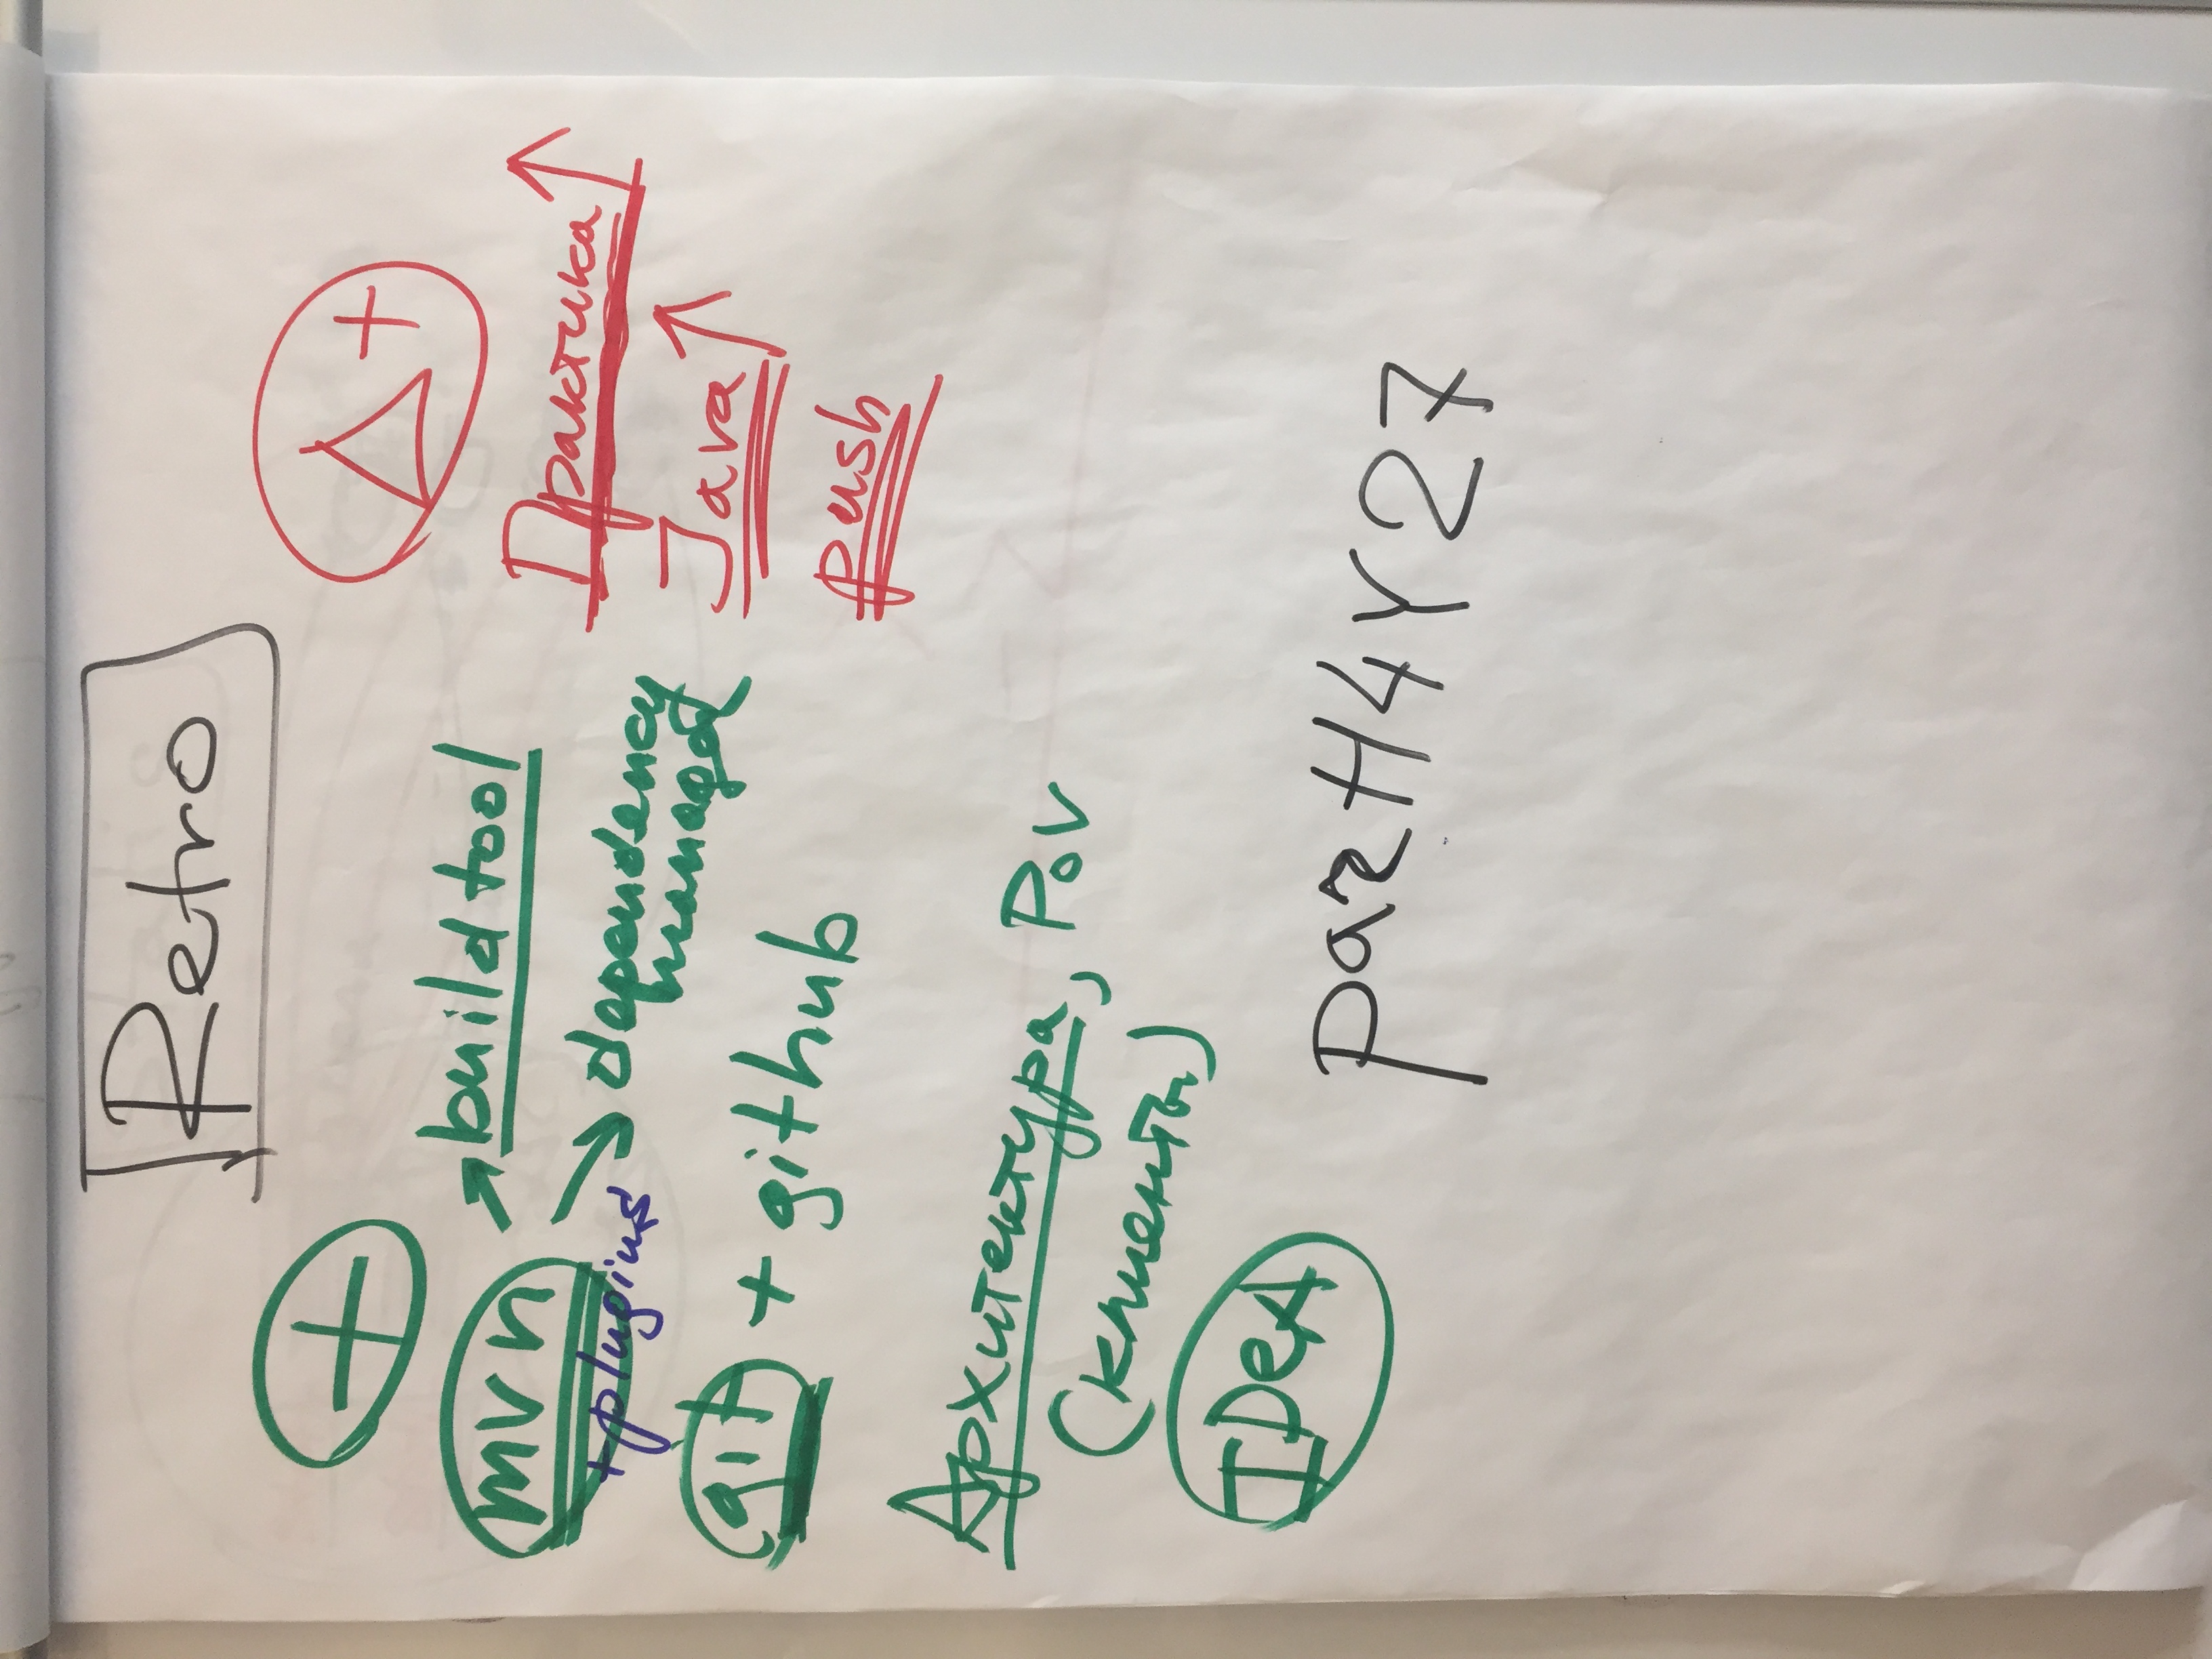 Retro
+
mvn → build tool
+plugins → dependency
manager
git + github
Архитектура, PoV
(клиенты)
IDeA
Δ+
Практика ↑
Java ↑
push
parH4Y27